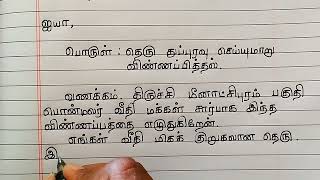 ஐயா,
பொருள் : தெரு துப்புரவு செய்யுமாறு
விண்ணப்பித்தல்.
வணக்கம். திருச்சி மீனாட்சிபுரம் பகுதி
பொன்மலர் வீதி மக்கள் சார்பாக இந்த
விண்ணப்பத்தை எழுதுகிறேன்.
எங்கள் வீதி மிகக் குறுகலான தெரு.
இ